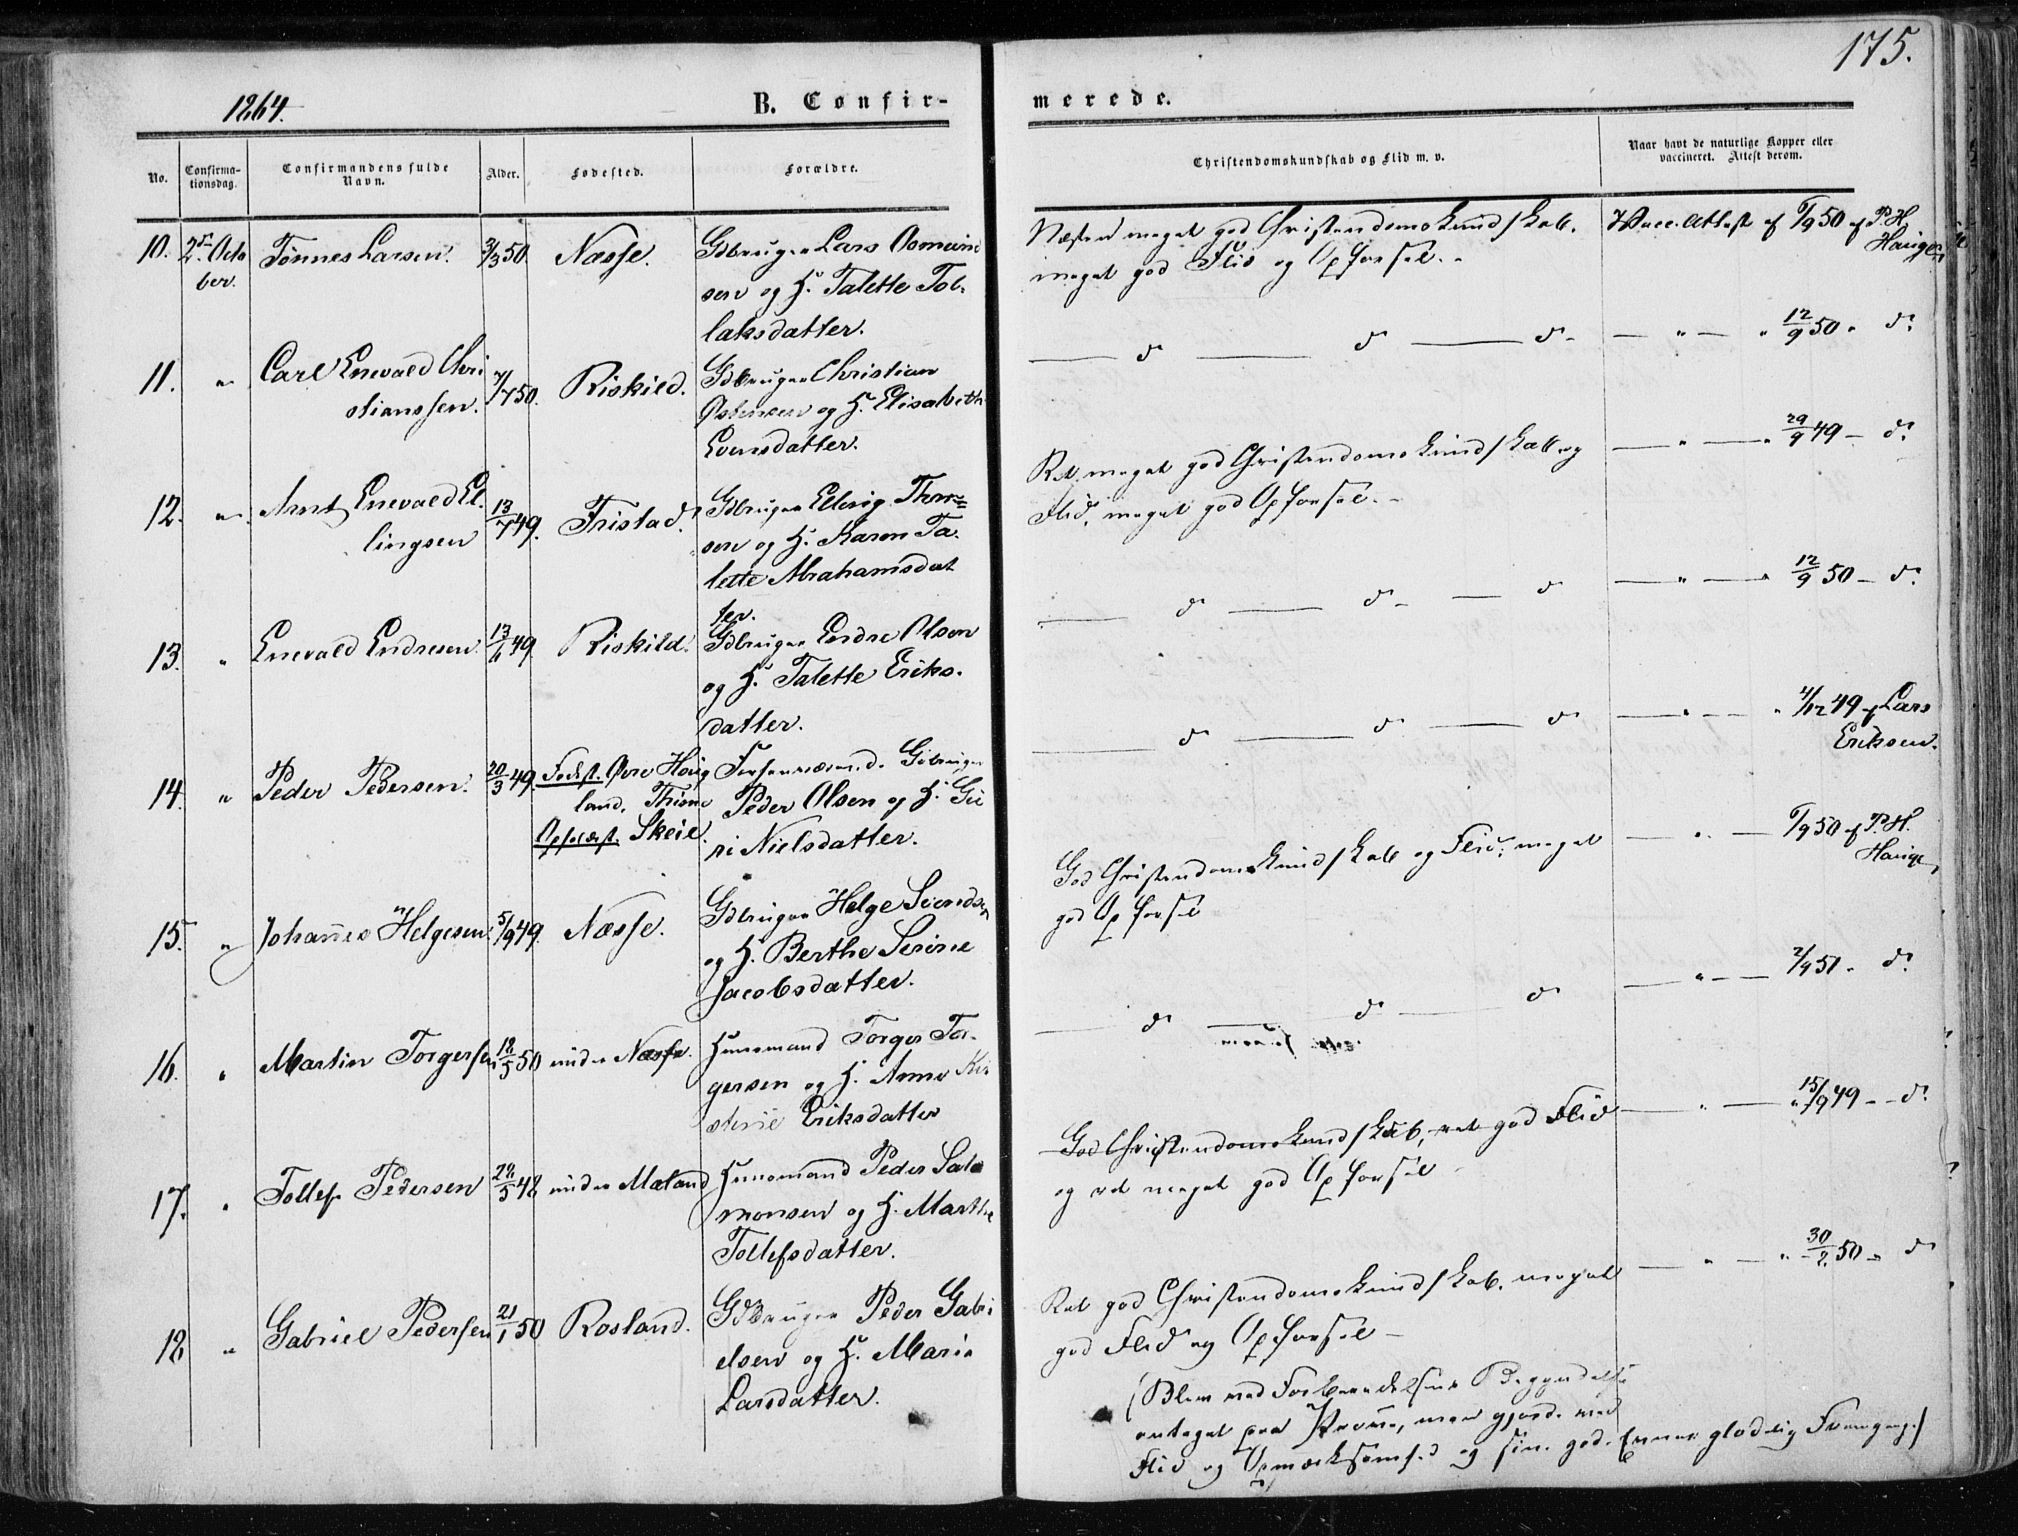 175.
1864.
B. Confir-
merede.
No.
Confirma-
tionsdag.
Confirmandens fulde
Navn.
Alder.
Fødested.
Forældre.
Christendomskundskab og Flid m. v.
Naar havt de naturlige Kopper eller
vaccineret. Attest derom.
10. 2den Octo
ber.
Tönnes Larsen. 3/3 50 Næsse.
Gdbruger Lars Osmund
sen og H. Talette Tol-
laksdatter.
Næsten meget god Christendomskundskab.
meget god Flid og Opførsel.
Vacc. Attest af 6/9 50 af P. H.
Hauge
11. " Carl Enevald Chri
stianssen. 7/7 50. Riskild.
Gdbruger Christian
Østensen og H. Elisabeth
Evensdatter.
— do — do — do —
— " — " 12/9 50 " do
12. " Arnt Enevald El-
lingsen 13/7 49. Tristad.
Gdbruger Elling Thom=
sen og H. Karen Ta-
lette Abrahamsdat
ter.
Ret meget god Christendomskundskab og
Flid, meget god Opførsel.
— " — " 29/9 49 — do
13. " Enevald Endresen. 13/6 49. Riskild.
Gdbruger Endre Olsen
og H. Talette Eriks-
datter.
— do — do — do
— " — " 12/9 50 — do
14. " Peder Pedersen. 20/3 49.
Fødest. Øvre Haug
land, Thime
Opholdsst. Skeie.
Gdbruger
Peder Olsen og H. Gu
ri Nielsdatter.
— do — do — do
— " — " 4/12 49 af Lars
Eriksen.
15. " Johannes Helgesen. 5/9 49. Næsse.
Gdbruger Helge Svends
og H. Berthe Serine
Jacobsdatter.
God Christendomskundskab og Flid, meget
god Opførsel
— " — 6/9 50 af P. H.
Hauge
16. " Martin Torgersen 18/5 50 under Næsse.
Huusmand Torger Tor-
gersen og H. Anne Kir
stine Eriksdatter
— do — do — do
— " — 2/9 51 " do
17. " Tollef Pedersen 22/5 48 under Mæland
Huusmand Peder Salo
monsen og H. Marthe
Tollefsdatter.
God Christendomskundskab, ret god Flid
og ret meget god Opførsel
— " — " 15/9 49 — do
18 " Gabriel Pedersen 21/1 50 Rosland.
Gdbruger Peder Gabri
elsen og H. Maria
Larsdatter.
Ret god Christendomskundskab, meget
god Flid og Opførsel —
— " — " 30/2 50 " do
(Blev ved Forberedelsens Begyndelse
antaget paa Prøve, men gjorde ved
Flid og Opmærksomhed og sine gode Evner glædelig Fremgang.)